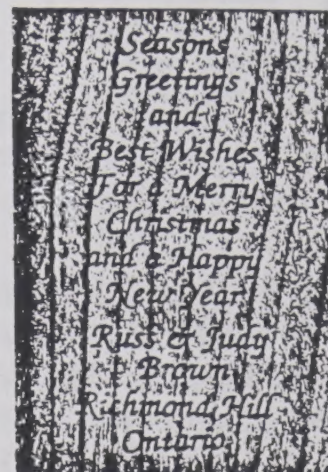 Seasons
Greetings
and
Best Wishes
For a Merry
Christmas
and a Happy
New Year
Russ & Judy
Brown
Richmond Hill
Ontario